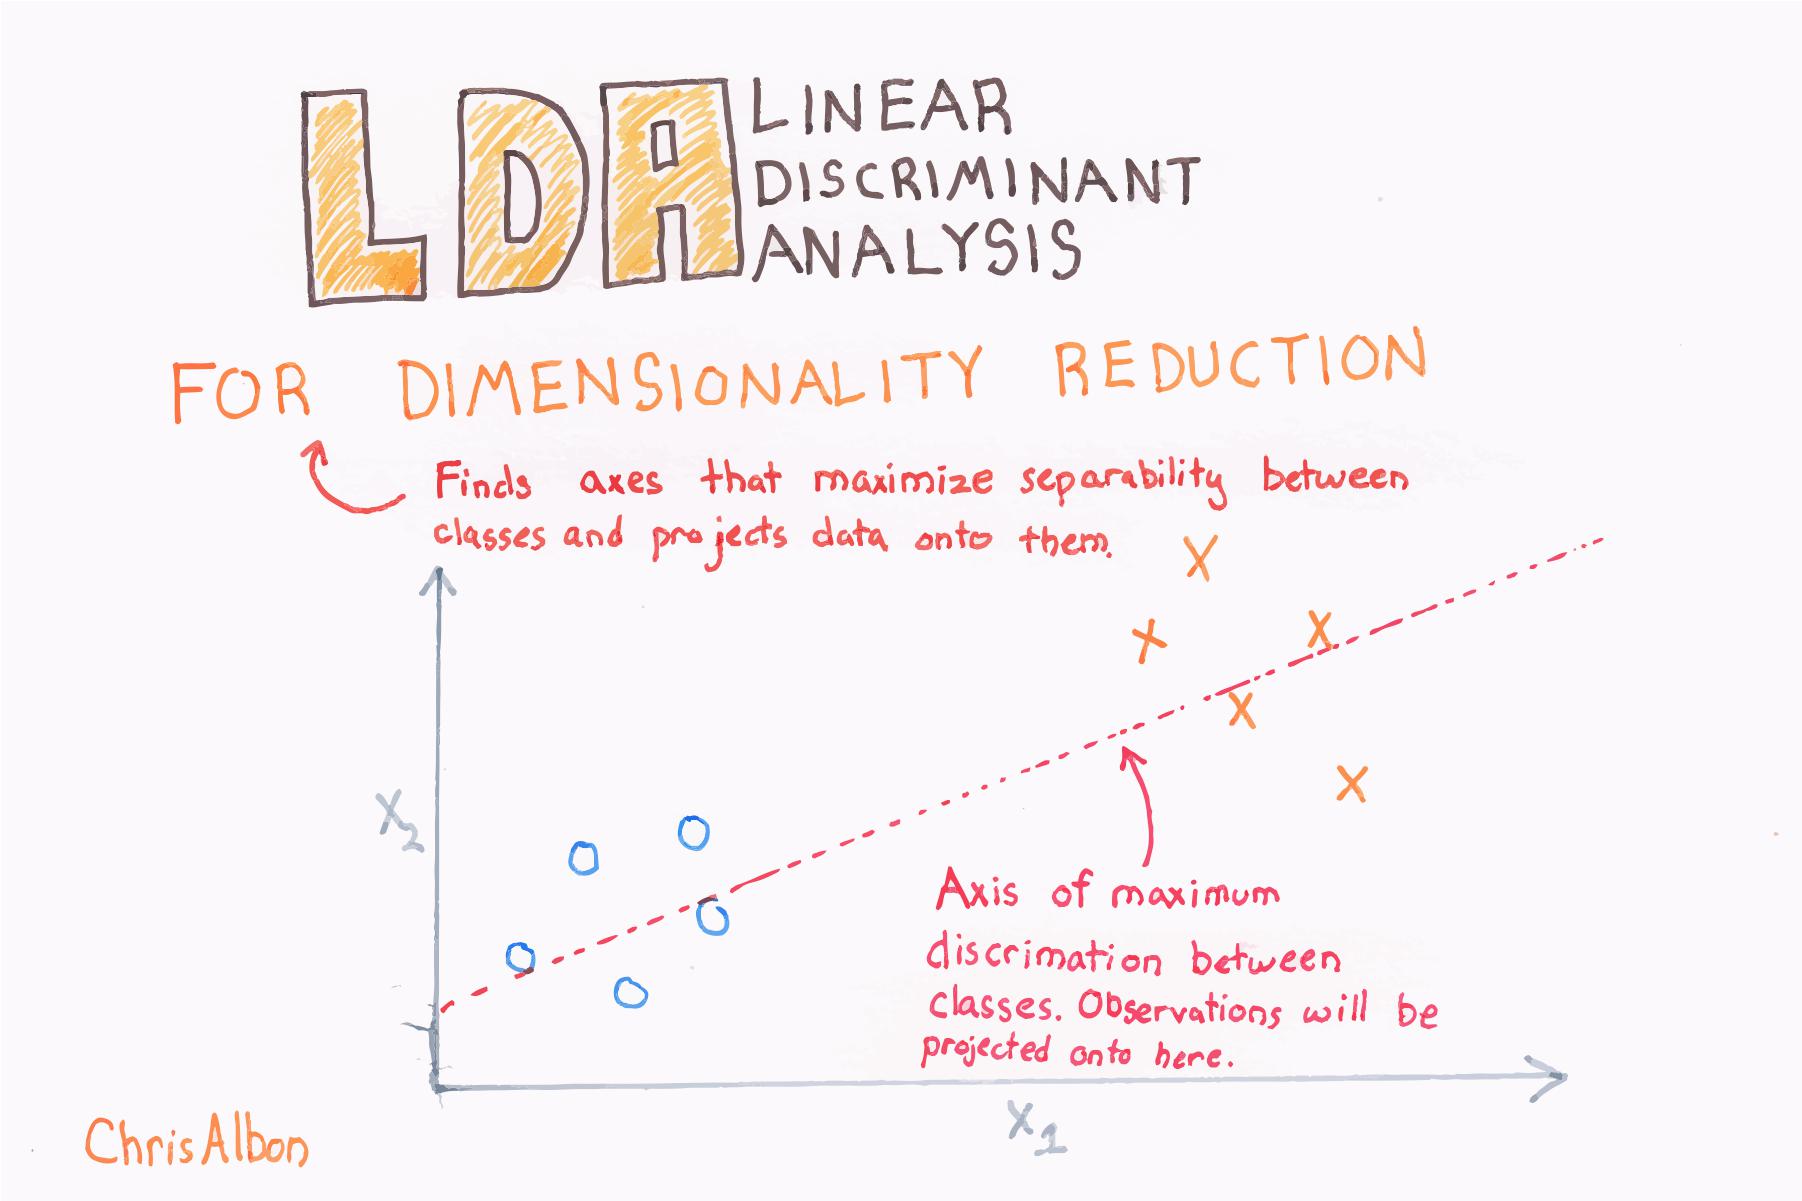 LDA LINEAR
DISCRIMINANT
ANALYSIS
FOR DIMENSIONALITY REDUCTION
Finds axes that maximize separability between
classes and projects data onto them.
X2
Axis of maximum
discrimation between
classes. Observations will be
projected onto here.
X1
ChrisAlbon